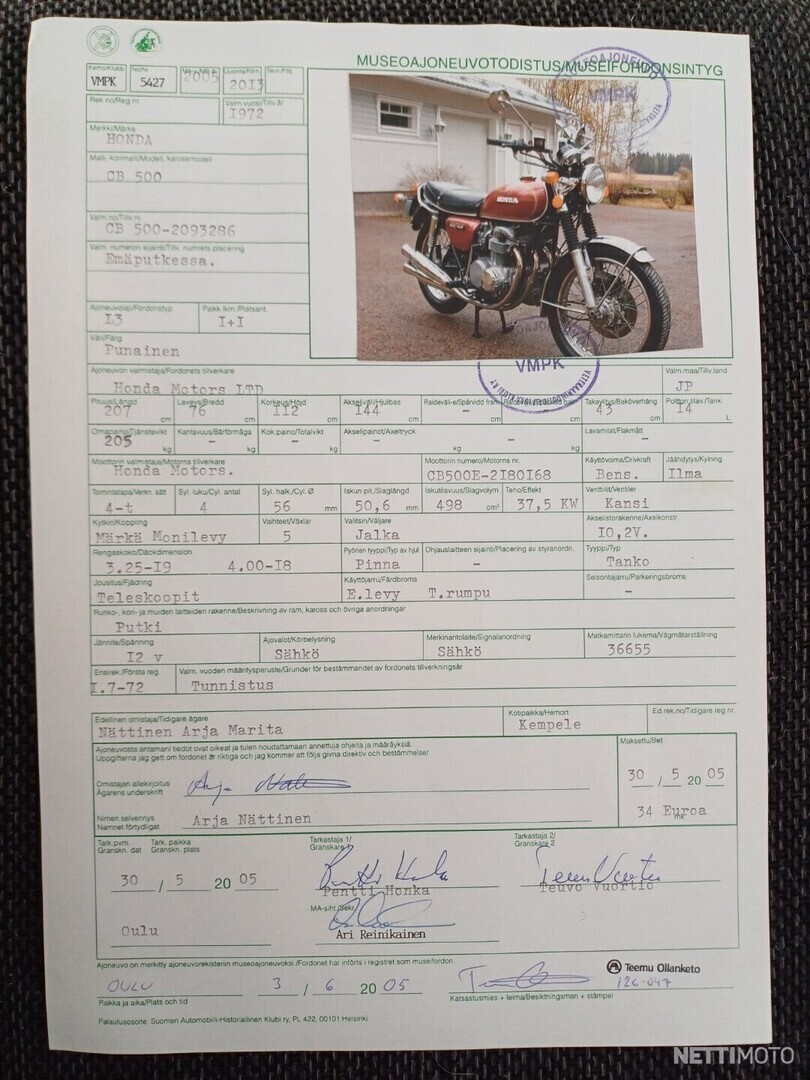 MUSEOAJONEUVOTODISTUS/MUSEIFORDONSINTYG
Kerho/Klubb Nro/No Uusinta/Förn.
VMPK 5427 2005 2013
Rek.no/Reg.nr Valm.vuosi/Tillv.år
1972
Merkki/Märke
HONDA
Malli, korimalli/Modell, karossmodell
CB 500
Valm.no/Tillv.nr
CB 500-2093286
Valm. numeron sijainti/Tillv. numrets placering
Emäputkessa.
Ajoneuvolaji/Fordonstyp Paikk.lkm./Platsant.
L3 I+I
Väri/Färg
Punainen
HONDA
VMPK
VMPK
Ajoneuvon valmistaja/Fordonets tillverkare Valm.maa/Tillv.land
Honda Motors LTD JP
Pituus/Längd Leveys/Bredd Korkeus/Höjd Akseliväli/Hjulbas Takaylitys/Baköverhäng Poltton.tilav./Tank.
207 cm 76 cm 112 cm 144 cm - cm - cm 43 cm 14 L
Omapaino/Tjänstevikt Kantavuus/Bärförmåga Kok.paino/Totalvikt Akselipainot/Axeltryck Lavamitat/Flakmått
205 kg - kg - kg - kg - kg -
Moottorin valmistaja/Motorns tillverkare Moottorin numero/Motorns nr. Käyttövoima/Drivkraft Jäähdytys/Kylning
Honda Motors. CB500E-2180168 Bens. Ilma
Toimintatapa/Verkn. sätt Syl. luku/Cyl. antal Syl. halk./Cyl. Ø Iskun pit./Slaglängd Iskutilavuus/Slagvolym Teho/Effekt Venttiilit/Ventiler
4-t 4 56 mm 50,6 mm 498 cm³ 37,5 KW Kansi
Kytkin/Koppling Vaihteet/Växlar Valitsin/Väljare Akselistorakenne/Axelkonstr.
Märkä Monilevy 5 Jalka IO,2V.
Rengaskoko/Däckdimension Pyörien tyyppi/Typ av hjul Ohjauslaitteen sijainti/Placering av styranordn. Tyyppi/Typ
3.25-I9 4.00-I8 Pinna - Tanko
Jousitus/Fjädring Käyttöjarru/Färdbroms Seisontajarru/Parkeringsbroms
Teleskoopit E.levy T.rumpu -
Runko-, kori- ja muiden laitteiden rakenne/Beskrivning av ram, kaross och övriga anordningar
Putki
Jännite/Spänning Ajovalot/Körbelysning Merkinantolaite/Signalanordning Matkamittarin lukema/Vägmätarställning
I2 v Sähkö Sähkö 36655
Ensirek./Första reg. Valm. vuoden määritysperuste/Grunder för bestämmandet av fordonets tillverkningsår
I.7-72 Tunnistus
Edellinen omistaja/Tidigare ägare Kotipaikka/Hemort Ed.rek.no/Tidigare reg nr.
Nättinen Arja Marita Kempele
Ajoneuvosta antamani tiedot ovat oikeat ja tulen noudattamaan annettuja ohjeita ja määräyksiä.
Uppgifterna jag gett om fordonet är riktiga och jag kommer att följa givna direktiv och bestämmelser
Maksettu/Bet
30 / 5 20 05
34 Euroa
mk
Omistajan allekirjoitus
Ägarens underskrift
Nimen selvennys
Namnet förtydligat
Arja Nättinen
Tark.pvm. Tark. paikka Tarkastaja 1/ Tarkastaja 2/
Granskn. dat Granskn. plats Granskare 1 Granskare 2
30 / 5 20 05
Pentti Honka Teuvo Vuortio
Oulu
Ari Reinikainen
Ajoneuvo on merkitty ajoneuvorekisteriin museoajoneuvoksi./Fordonet har införts i registret som museifordon.
Teemu Ollanketo
OULU 3 / 6 20 05 126-047
Paikka ja aika/Plats och tid Katsastusmies + leima/Besiktningsman + stämpel
Palautusosoite: Suomen Automobiili-Historiallinen Klubi ry, PL 422, 00101 Helsinki
NETTIMOTO